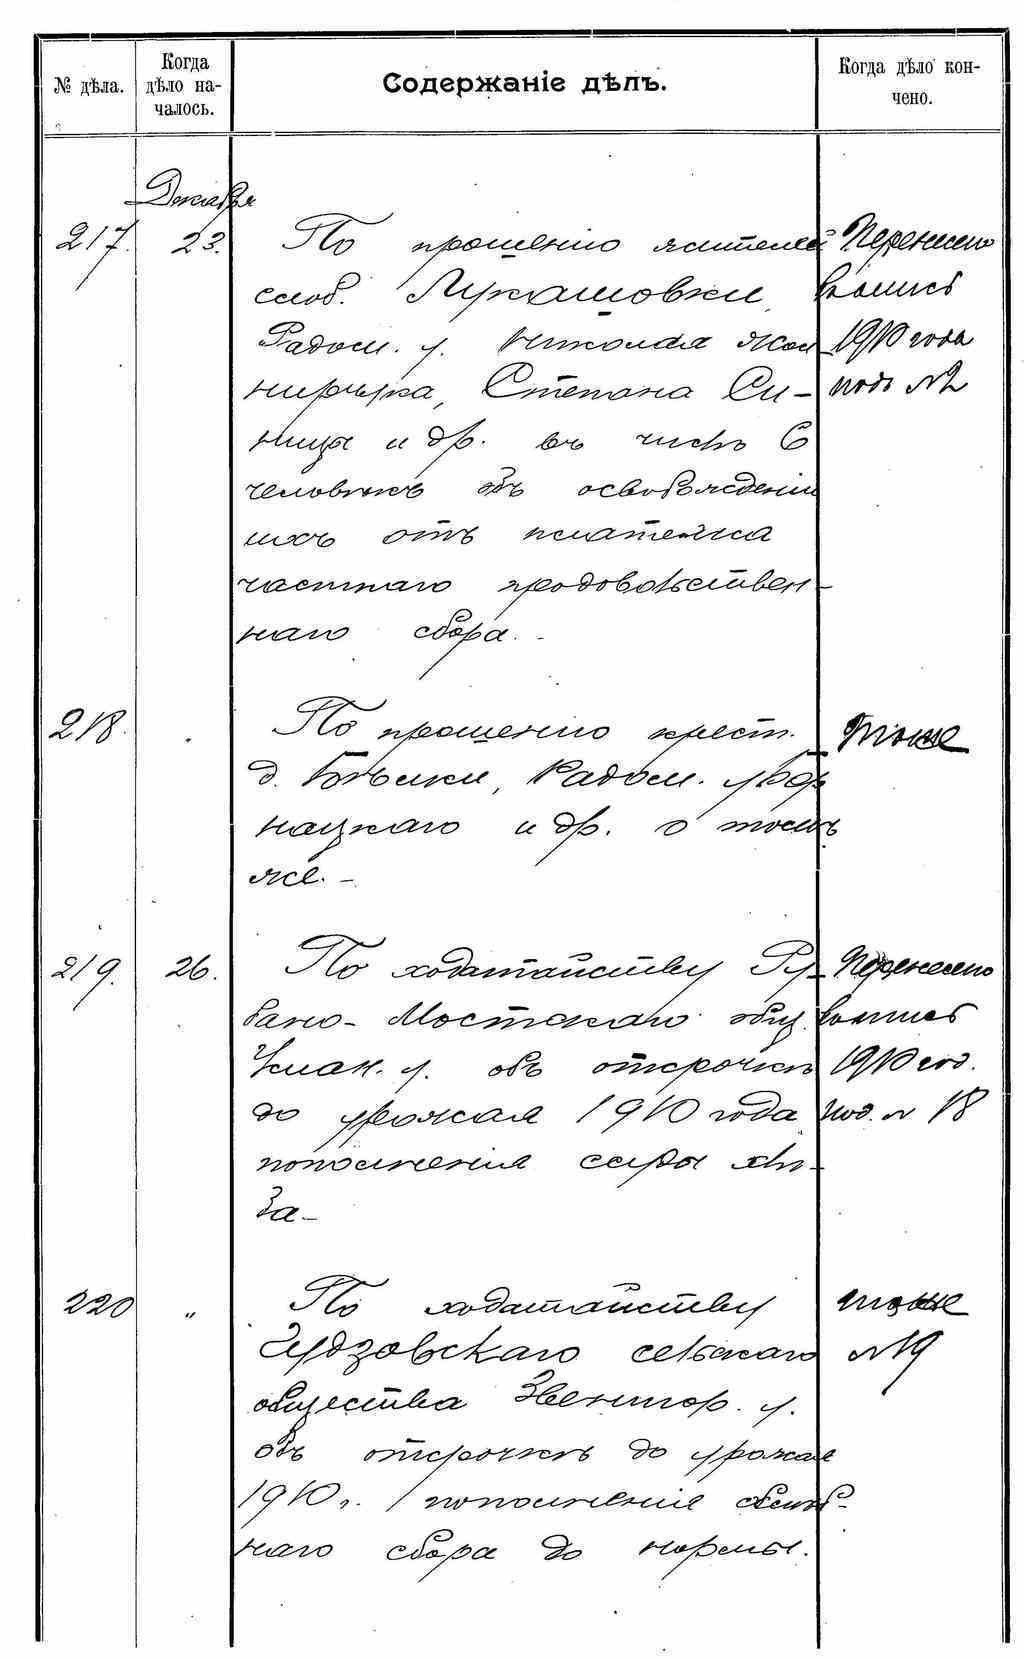 № дѣла.
Когда дѣло на-
чалось.
Содержаніе дѣлъ.
Когда дѣло кон-
чено.
Декабря
217. 23. По прошенію жителей
слоб. Лукашовки,
Радом. у. Николая Жол
нирчука, Степана Си-
ницы и др. въ числѣ 6
человѣкъ объ освобожденіи
ихъ отъ платежа
частнаго продовольствен-
наго сбора. -
Перенесено
въ опись
1910 года
подъ №2
218. По прошенію крест.
д. Бѣлки, Радом. у.
нацкаго и др. о томъ
же. -
тоже
219. 26. По ходатайству Ру-
бано-Мостскаго общ.
Уман. у. объ отсрочкѣ
до урожая 1910 года
пополненія ссуды хлѣ-
ба -
Перенесено
въ опись
1910 год.
под. № 18
220 " По ходатайству
Гудзовскаго сельскаго
общества Звенигор. у.
объ отсрочкѣ до урожая
1910 г. пополненія
наго сбора до нормы.
тоже
№19